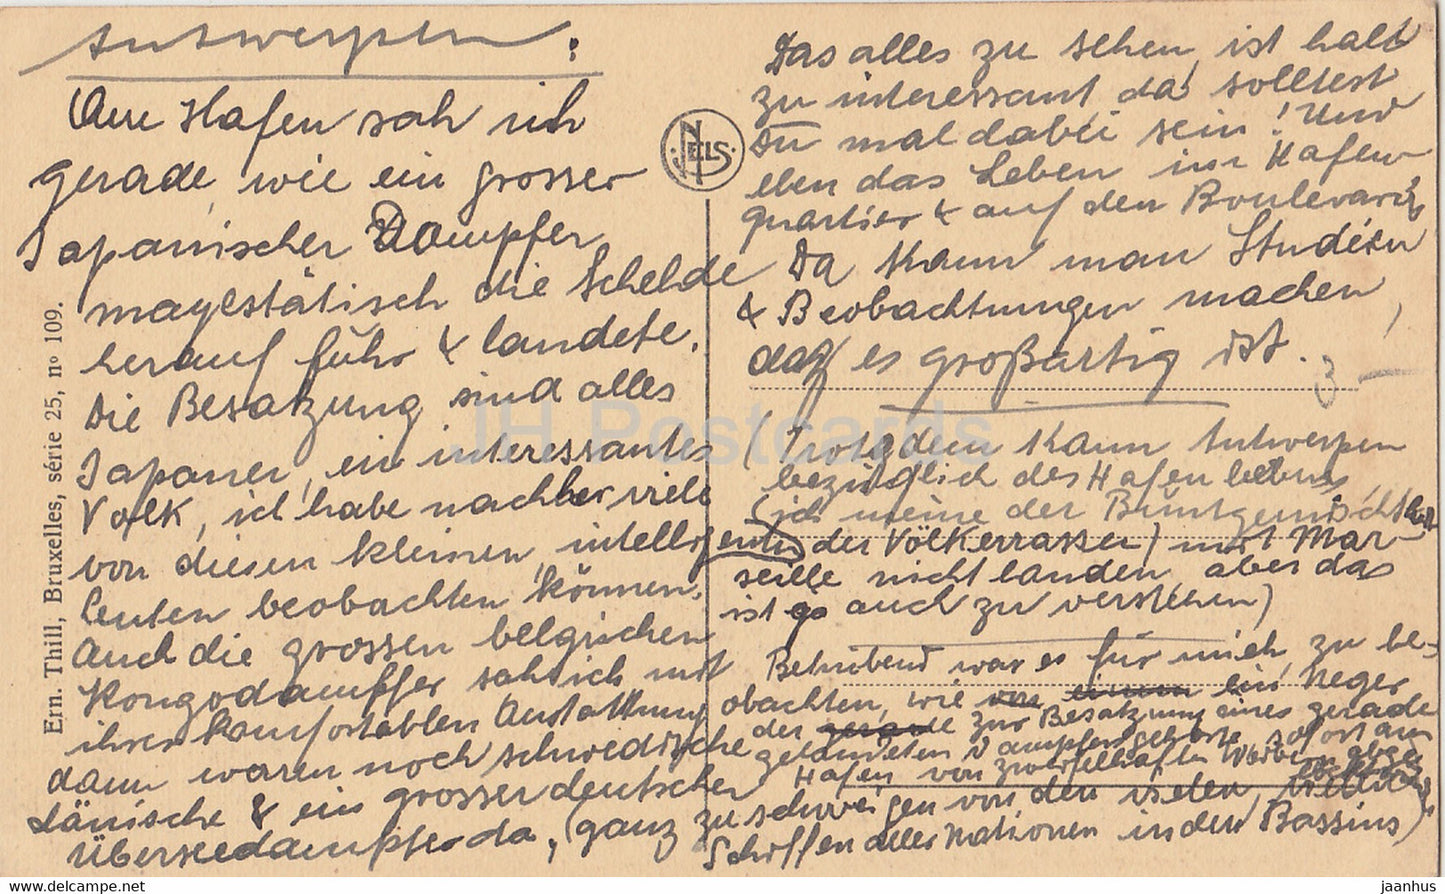 Antwerpen:
Am Hafen sah ich
gerade, wie ein grosser
Japanischer Dampfer
majestätisch die Schelde
herauf fuhr & landete.
Die Besatzung sind alles
Japaner, ein interessantes
Volk, ich habe nachher viele
von diesen kleinen, intelligenten
Leuten beobachten können.
Auch die grossen belgischen
Kongodampffer sah ich mit
ihrer komfortablen Austattung
dann waren noch schwedische
dänische & ein grosser deutscher
Überseedampfer da, (ganz zu schweigen von den vielen, vielen
Schiffen aller Nationen in den Bassins)
Ern. Thill, Bruxelles, série 25, nº 109.
NELS
Das alles zu sehen, ist halt
zu interessant da solltest
Du mal dabei sein! Und
eben das Leben im Hafen
quartier & auf den Boulevards
Da kann man Studien
& Beobachtungen machen,
daß es großartig ist.
3.-
(Trotzdem kann Antwerpen
bezüglich des Hafenlebens,
(ich meine der Buntgemischtheit
der Völkerrassen) mit Mar-
seille nicht landen, aber das
ist ja auch zu verstehen)
Betrübend war es für mich, zu be-
obachten, wie von einem ein Neger
der gerade zur Besatzung eines gerade
gelandeten Dampfers gehörte, sofort am
Hafen von zweifelhaften Weibern
JH Postcards
jaanhus | delcampe.net